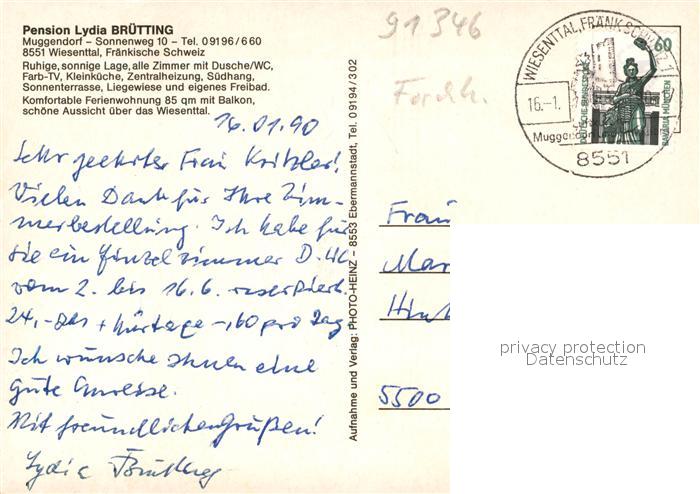 Pension Lydia BRÜTTING
Muggendorf – Sonnenweg 10 – Tel. 09196/660
8551 Wiesenttal, Fränkische Schweiz
Ruhige, sonnige Lage, alle Zimmer mit Dusche/WC,
Farb-TV, Kleinküche, Zentralheizung, Südhang,
Sonnenterrasse, Liegewiese und eigenes Freibad.
Komfortable Ferienwohnung 85 qm mit Balkon,
schöne Aussicht über das Wiesenttal.
16.01.90
Sehr geehrter Frau Kritzler!
Vielen Dank für Ihre Zim-
merbestellung. Ich habe für
Sie ein Einzelzimmer D. WC
vom 2. bis 16.6. reserviert.
24,- DM + Kurtaxe -,60 pro Tag
Ich wünsche Ihnen eine
gute Anreise.
Mit freundlichen Grüßen!
Lydia Brütting
Aufnahme und Verlag: PHOTO-HEINZ – 8553 Ebermannstadt, Tel. 09194/302
91346
Forchh.
WIESENTTAL, FRÄNK. SCHWEIZ
16.-1.
Muggendorf
8551
60
DEUTSCHE BUNDESPOST
BAVARIA MÜNCHEN
Frau
Mar
Hint
5500
privacy protection
Datenschutz